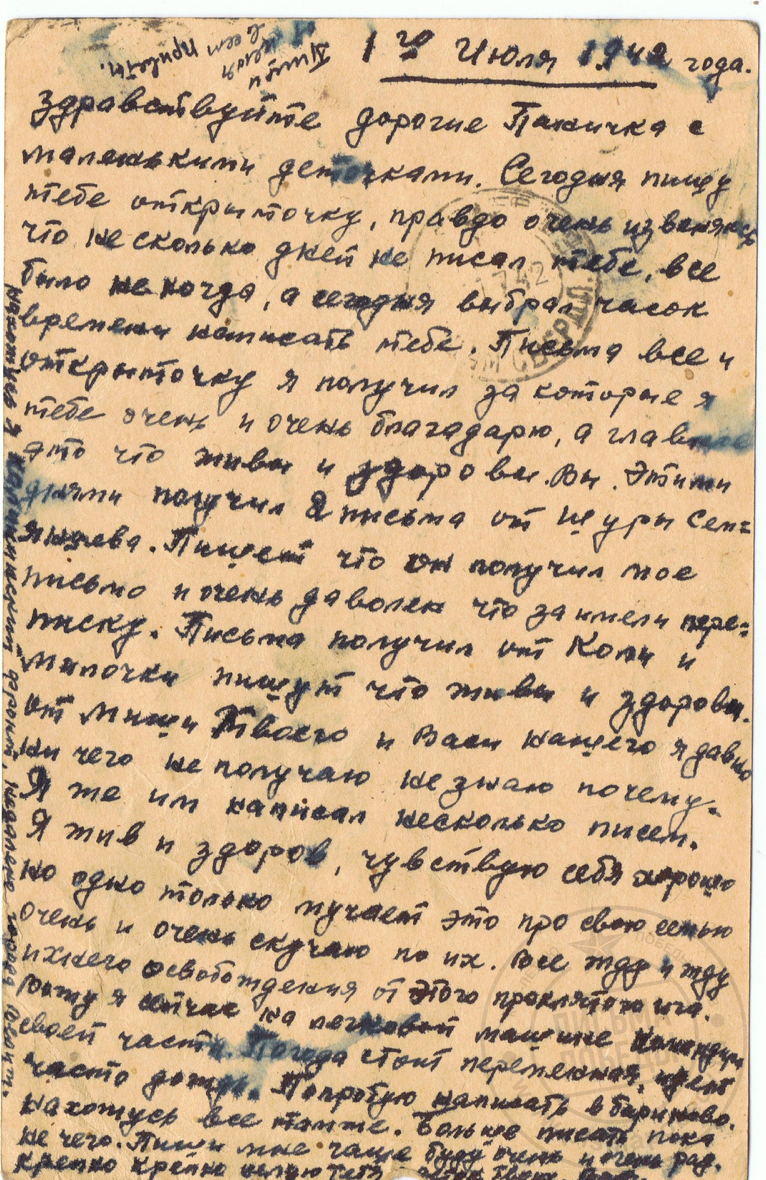 1го Июля 1942 года.
Пиши
целуя
всем привет.
Здравствуйте дорогие Паничка с
маленькими деточками. Сегодня пишу
тебе открыточку, правдо очень извеняюсь
что несколько дней не писал тебе, все
было не когда, а сегодня выбрал часок
времени написать тебе. Письма все и
открыточку я получил за которые я
тебе очень и очень благадарю, а главное
это что живы и здоровы Вы. Этими
днями получил 2 письма от Шуры Сем=
янцева. Пишет что он получил мое
письмо и очень даволен что заимели пере=
писку. Письма получил от Коли и
Милочки пишут что живы и здоровы.
От Миши Твоего и Васи нашего я давно
ни чего не получаю не знаю почему.
Я же им написал несколько писем.
Я жив и здоров, чувствую себя хорошо
но одно только мучает это про свою семью
очень и очень скучаю по их. Все жду и жду
ихнего освобождения от этого проклятого ига.
Вожу я сейчас на легковой машине командира
своей части. Погода стоит переменная, идет
часто дождь. Попробую написать в Бариново.
Нахожусь все там же. Больше писать пока
не чего. Пиши мне чаще буду очень и очень рад.
Крепко крепко целую тебя
нахожусь я Калининский фронт, недалеко города